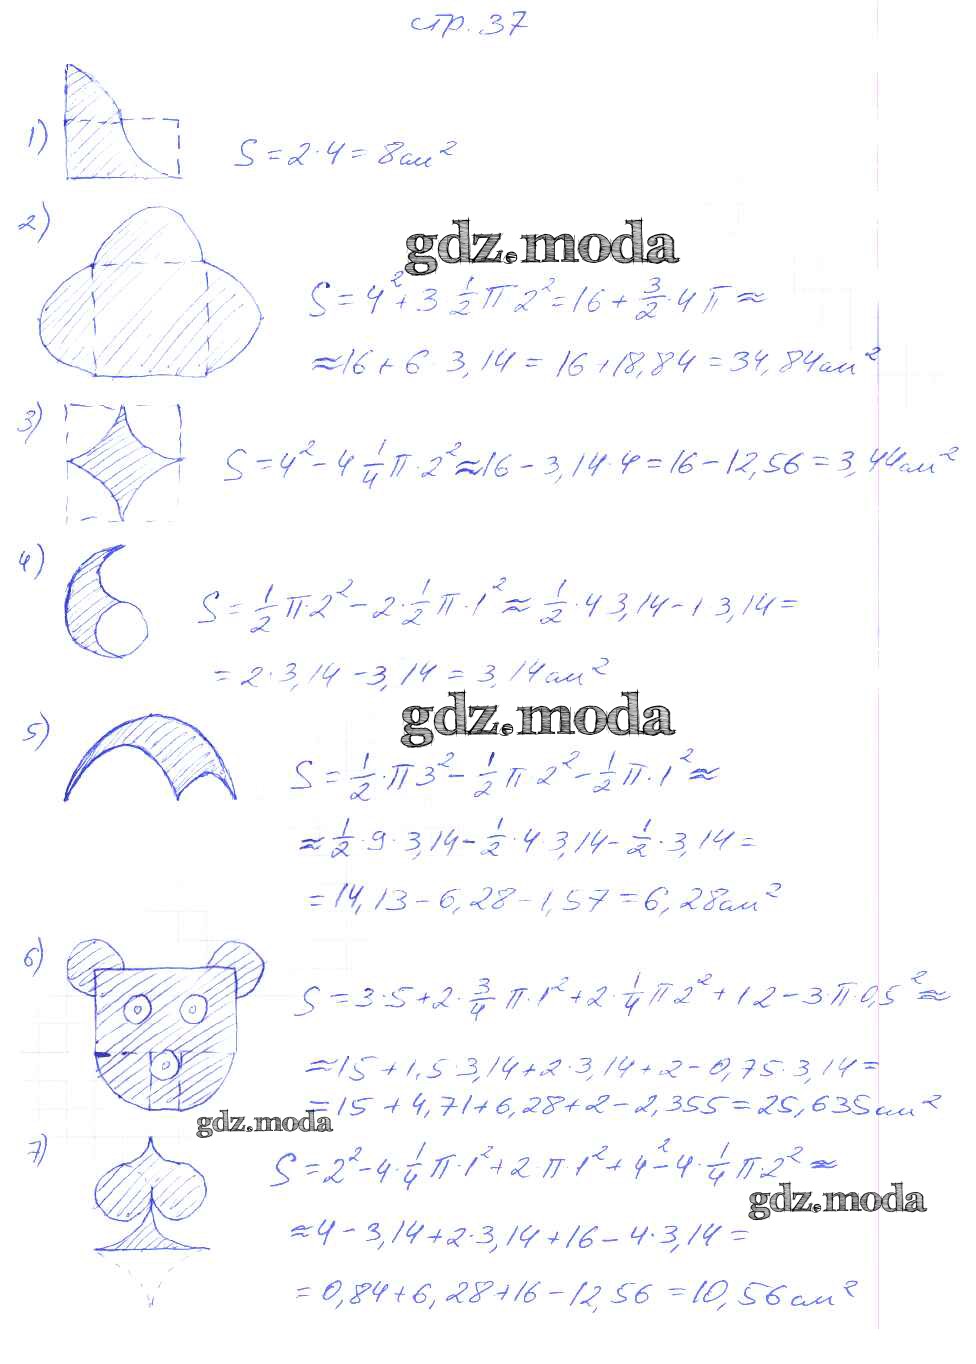 стр. 37
1)
S = 2·4 = 8см²
2)
gdz.moda
S = 4² + 3 1/2 π 2² = 16 + 3/2 · 4 π ≈
≈ 16 + 6 · 3,14 = 16 + 18,84 = 34,84см²
3)
S = 4² - 4 1/4 π · 2² ≈ 16 - 3,14·4 = 16 - 12,56 = 3,44см²
4)
S = 1/2 π·2² - 2·1/2 π·1² ≈ 1/2 · 4 3,14 - 1 3,14 =
= 2·3,14 - 3,14 = 3,14см²
gdz.moda
5)
S = 1/2 · π 3² - 1/2 π 2² - 1/2 π·1² ≈
≈ 1/2 · 9 · 3,14 - 1/2 · 4 · 3,14 - 1/2 · 3,14 =
= 14,13 - 6,28 - 1,57 = 6,28см²
6)
S = 3·5 + 2· 3/4 π·1² + 2· 1/4 π 2² + 1 2 - 3·π·0,5² ≈
≈ 15 + 1,5·3,14 + 2·3,14 + 2 - 0,75·3,14 =
= 15 + 4,71 + 6,28 + 2 - 2,355 = 25,635см²
gdz.moda
7)
S = 2² - 4· 1/4 π·1² + 2·π·1² + 4² - 4· 1/4 π·2² ≈
gdz.moda
≈ 4 - 3,14 + 2·3,14 + 16 - 4·3,14 =
= 0,84 + 6,28 + 16 - 12,56 = 10,56см²